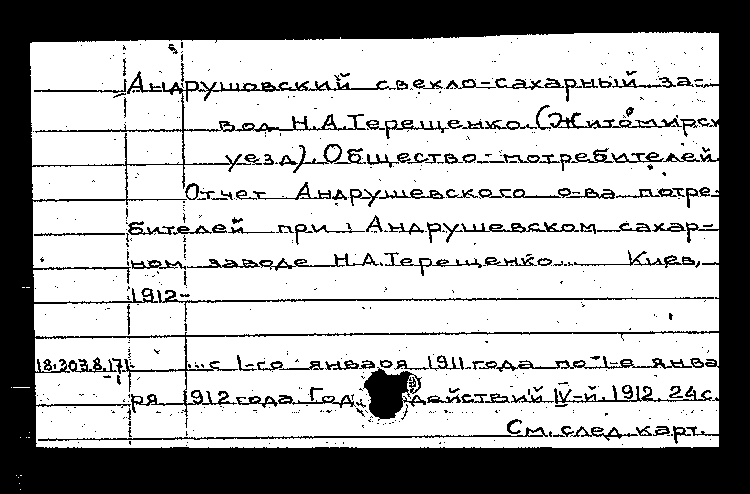 Андрушовский свекло-сахарный за-
вод Н.А.Терещенко.(Житомирск
уезд).Общество потребителей.
Отчет Андрушевского о-ва потре-
бителей при Андрушевском сахар-
ном заводе Н.А.Терещенко... Киев,
1912-
18.303.8.171 ...с 1-го января 1911 года по 1-е янва
ря 1912 года Год действий IV-й. 1912. 24 с.
См. след. карт.